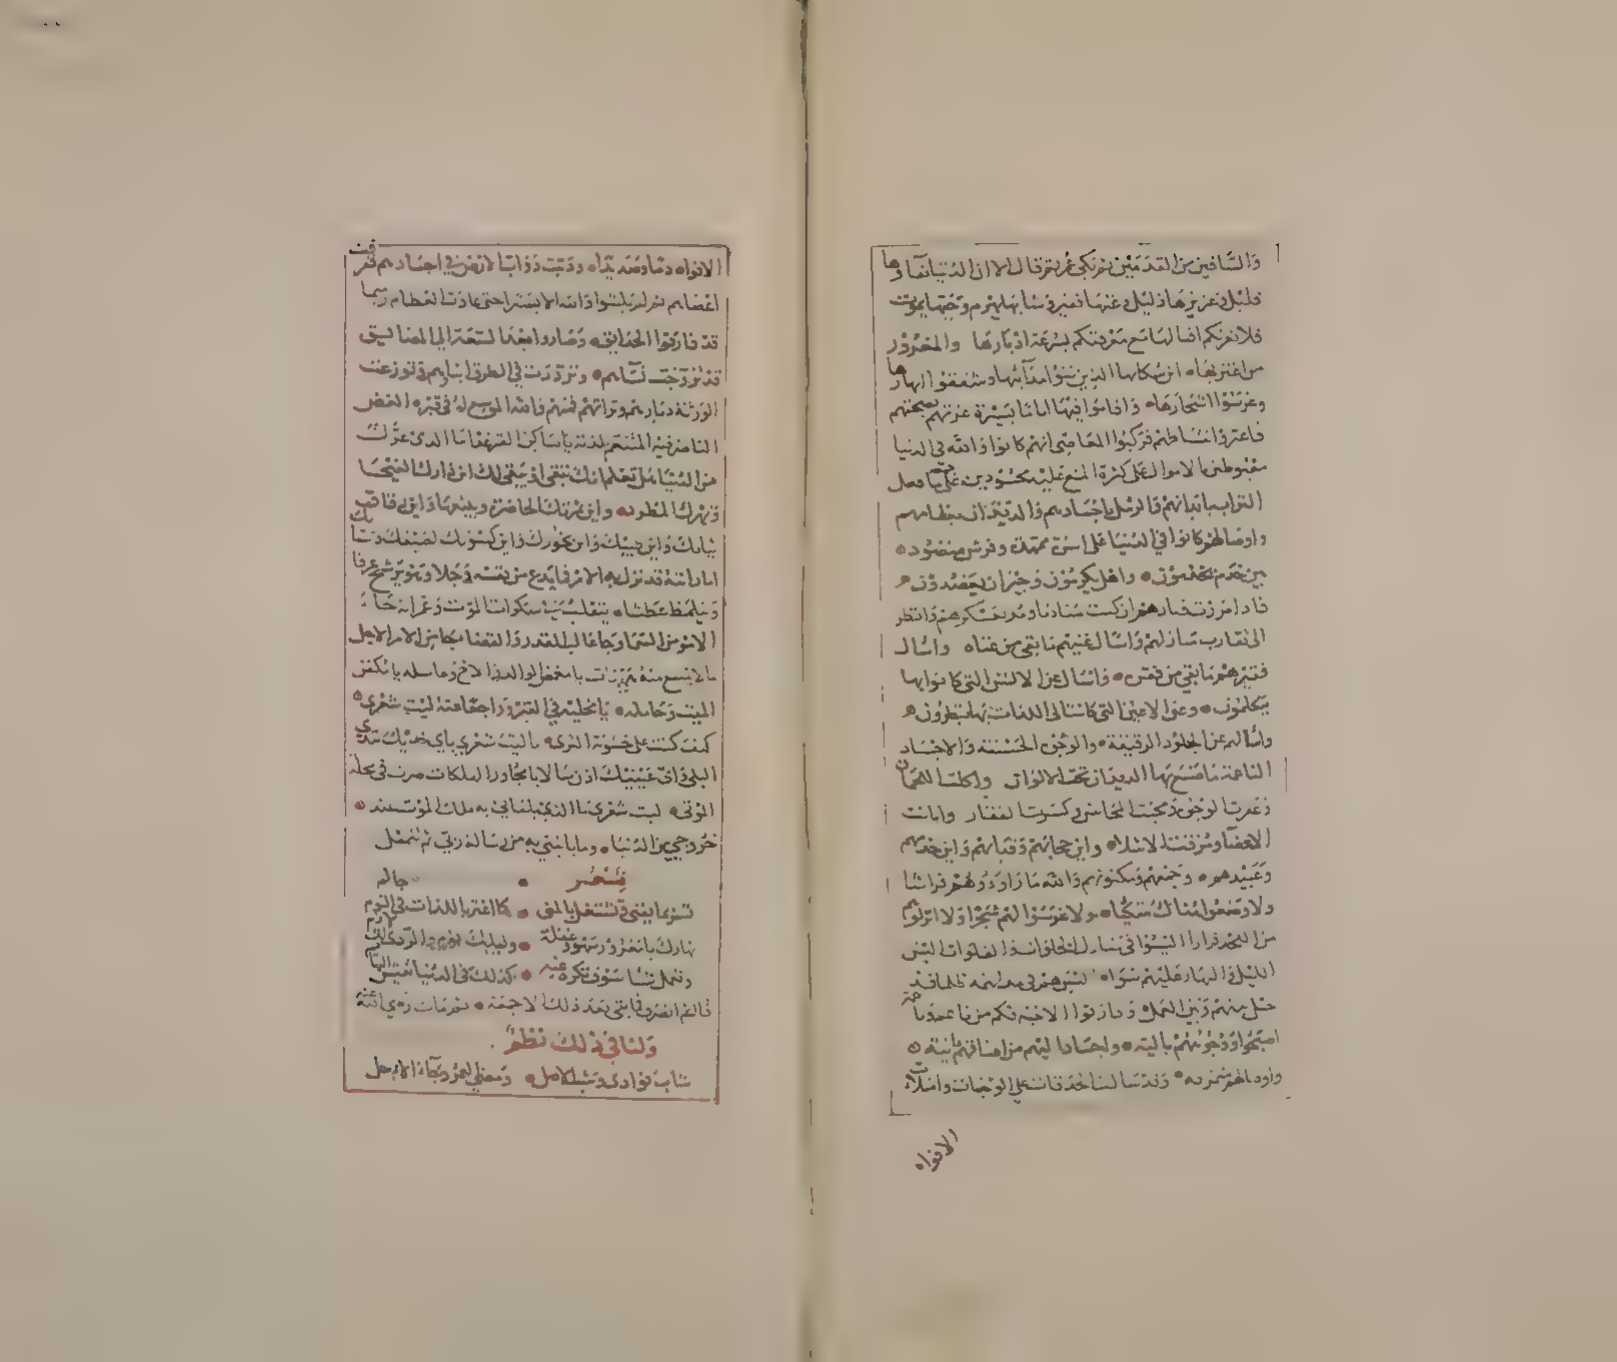 والساقين من القدمين ثم بكى عمر ثم قال الا ان الدنيا بقاؤها
قليل وعزيزها ذليل وغنيها فقير وشابها يهرم وحيها يموت
فلا يغرنكم اقبالها مع معرفتكم بسرعة ادبارها والمغرور
من اغتر بها اين سكانها الذين بنوا مدائنها وشققوا انهارها
وغرسوا اشجارها واقاموا فيها اياما يسيرة غرتهم بصحتهم
فاغتروا بنشاطهم فركبوا المعاصي انهم كانوا والله في الدنيا
مغبوطين بالاموال على كثرة المنع عليه محسودين على جمعه ما فعل
التراب بابدانهم والرمل باجسادهم والديدان بعظامهم
واوصالهم كانوا في الدنيا على اسرة ممهدة وفرش منضودة
بين خدم يخدمون واهل يكرمون وجيران يعضدون
فاذا مررت فنادهم ان كنت مناديا ومر بعسكرهم وانظر
الى تقارب منازلهم واسال غنيهم ما بقي من غناه واسال
فقيرهم ما بقي من فقره واسال عن الالسن التي كانوا بها
يتكلمون وعن الاعين التي كانت الى اللذات بها ينظرون
واسالهم عن الجلود الرقيقة والوجوه الحسنة والاجساد
الناعمة ما صنع بها الديدان تحت الالوان واكلت اللحمان
وعفرت الوجوه ومحت المحاسن وكسرت الفقار وابانت
الاعضا ومزقت الاشلاء واين حجابهم وقبابهم واين خدمهم
وعبيدهم وجمعهم ومكنوزهم والله ما زاودوهم فراشا
ولا وضعوا هناك متكئا ولا غرسوا لهم شجرا ولا انزلوهم
من اللحد قرارا اليسوا في منازل الخلوات والفلوات اليس
الليل والنهار عليهم سواء اليس هم في مدلهمة ظلما قد
حيل بينهم وبين العمل وفارقوا الاحبة فكم من ناعم وناعمة
اصبحوا ووجوههم بالية واجسادهم من اعناقهم بائنة
واوصالهم متمزقة وقد سالت الحدقات على الوجنات وامتلات
الافواه
الافواه دما وصديدا ودبت دواب الارض في اجسادهم ففرقت
اعضاءهم ثم لم يلبثوا والله الا يسيرا حتى عادت العظام رميما
قد فارقوا الحدائق وصاروا بعد السعة الى المضائق
قد تزوجت نساؤهم وترددت في الطرق ابناؤهم وتوزعت
الورثة ديارهم وتراثهم فمنهم والله الموسع له في قبره الغض
الناضر فيه المتنعم بلذته يا ساكن القبر غدا ما الذي غرك
من الدنيا هل تعلم انك تبقى او تبقى لك اين دارك الفيحا
ونهرك المطرد واين ثمرتك الحاضرة وينعها واين رقاق
ثيابك واين طيبك واين بخورك واين كسوتك لصيفك وشتائك
اما رايته قد نزل به الامر فما يدفع عن نفسه وجلا وهو يرشح عرقا
ويتلمظ عطشا يتقلب في سكرات الموت وغمراته جاء
الامر من السما وجا غالب القدر والقضا جا من الامر الاجل
ما لا يمتنع منه هيهات يا مغمض الوالد والاخ وغاسله يا مكفن
الميت وحامله يا مخليه في القبر وراجعا عنه ليت شعري
كيف كنت على خشونة الثرى يا ليت شعري باي خديك بدى
البلى واي عينيك اذن سالا يا مجاور الهلكات صرت في محلة
الموتى ليت شعري ما الذي يلقاني به ملك الموت عند
خروجي من الدنيا وما ياتيني به من رسالة ربي ثم تمثل
شعر
تسر بما يفنى وتشتغل بالمنى كما اغتر باللذات في النوم حالم
نهارك يا مغرور سهو وغفلة وليلك نوم والردى لك لازم
وتعمل شيئا سوف تكره غبه كذلك في الدنيا تعيش البهائم
ثم انصرف فما بقي بعد ذلك الا جمعة ثم مات رضي الله عنه
ولنا في ذلك نظم
شاب فودي وشب الامل ومضى العمر وجاء الاجل